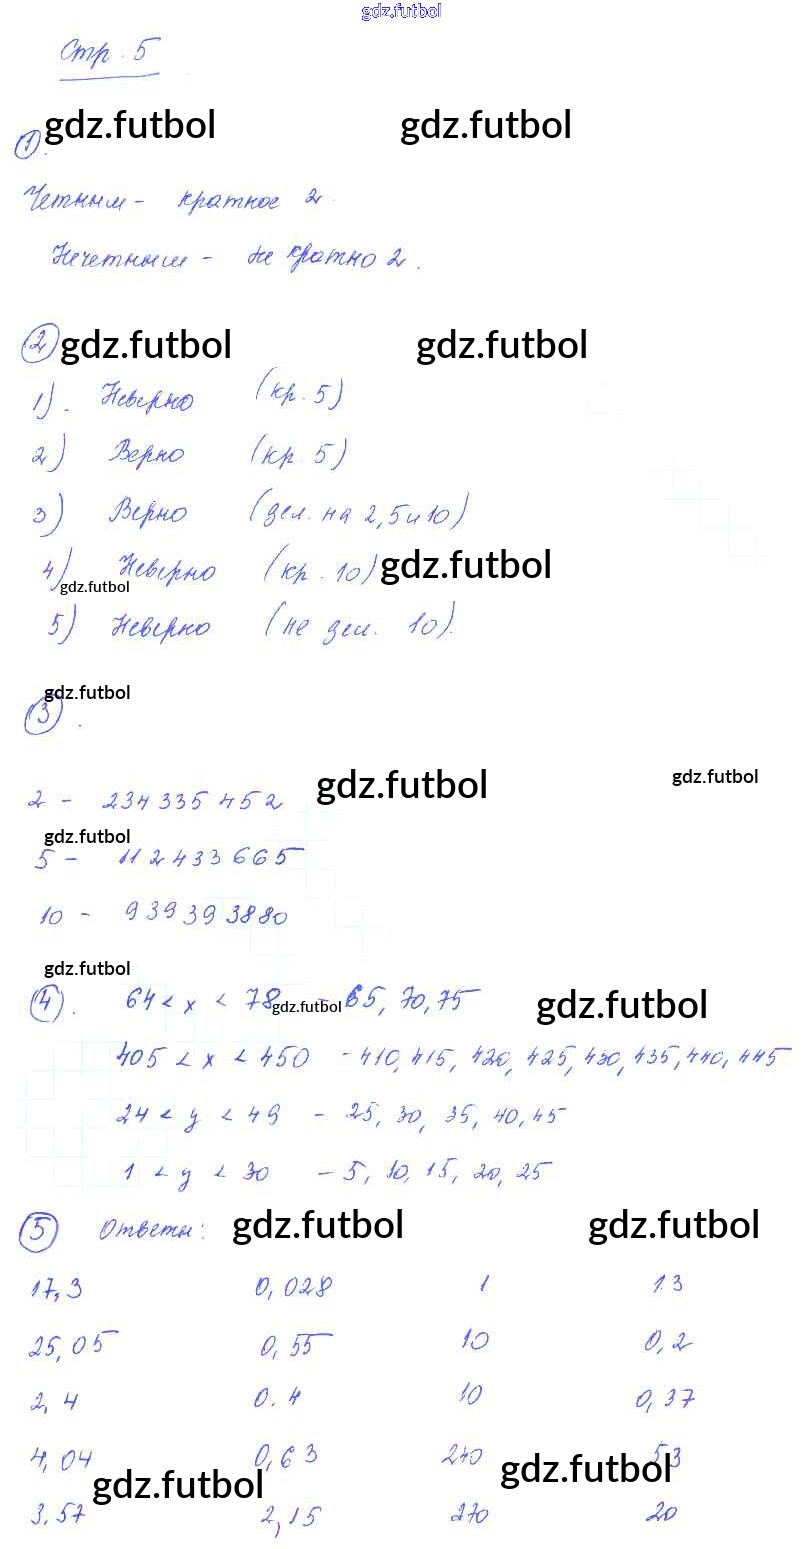 gdz.futbol
Стр. 5
gdz.futbol gdz.futbol
1.
Четным - кратное 2.
Нечетным - не кратно 2.
2 gdz.futbol gdz.futbol
1). Неверно (кр. 5)
2) Верно (кр. 5)
3) Верно (дел. на 2, 5 и 10)
4) Неверно (кр. 10) gdz.futbol
gdz.futbol
5) Неверно (не дел. 10).
gdz.futbol
3.
2 - 234335452 gdz.futbol gdz.futbol
gdz.futbol
5 - 112433665
10 - 939393880
gdz.futbol
4). 64 < x < 78 gdz.futbol - 65, 70, 75 gdz.futbol
405 < x < 450 - 410, 415, 420, 425, 430, 435, 440, 445
24 < y < 49 - 25, 30, 35, 40, 45
1 < y < 30 - 5, 10, 15, 20, 25
5 Ответы: gdz.futbol gdz.futbol
17,3 0,028 1 13
25,05 0,55 10 0,2
2,4 0.4 10 0,37
4,04 0,63 240 53
gdz.futbol gdz.futbol
3.57 2,15 270 20